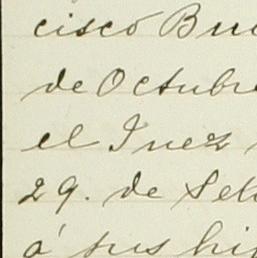 cisco Bu
de Octubre
el Inez
29. de Set
á sus hi